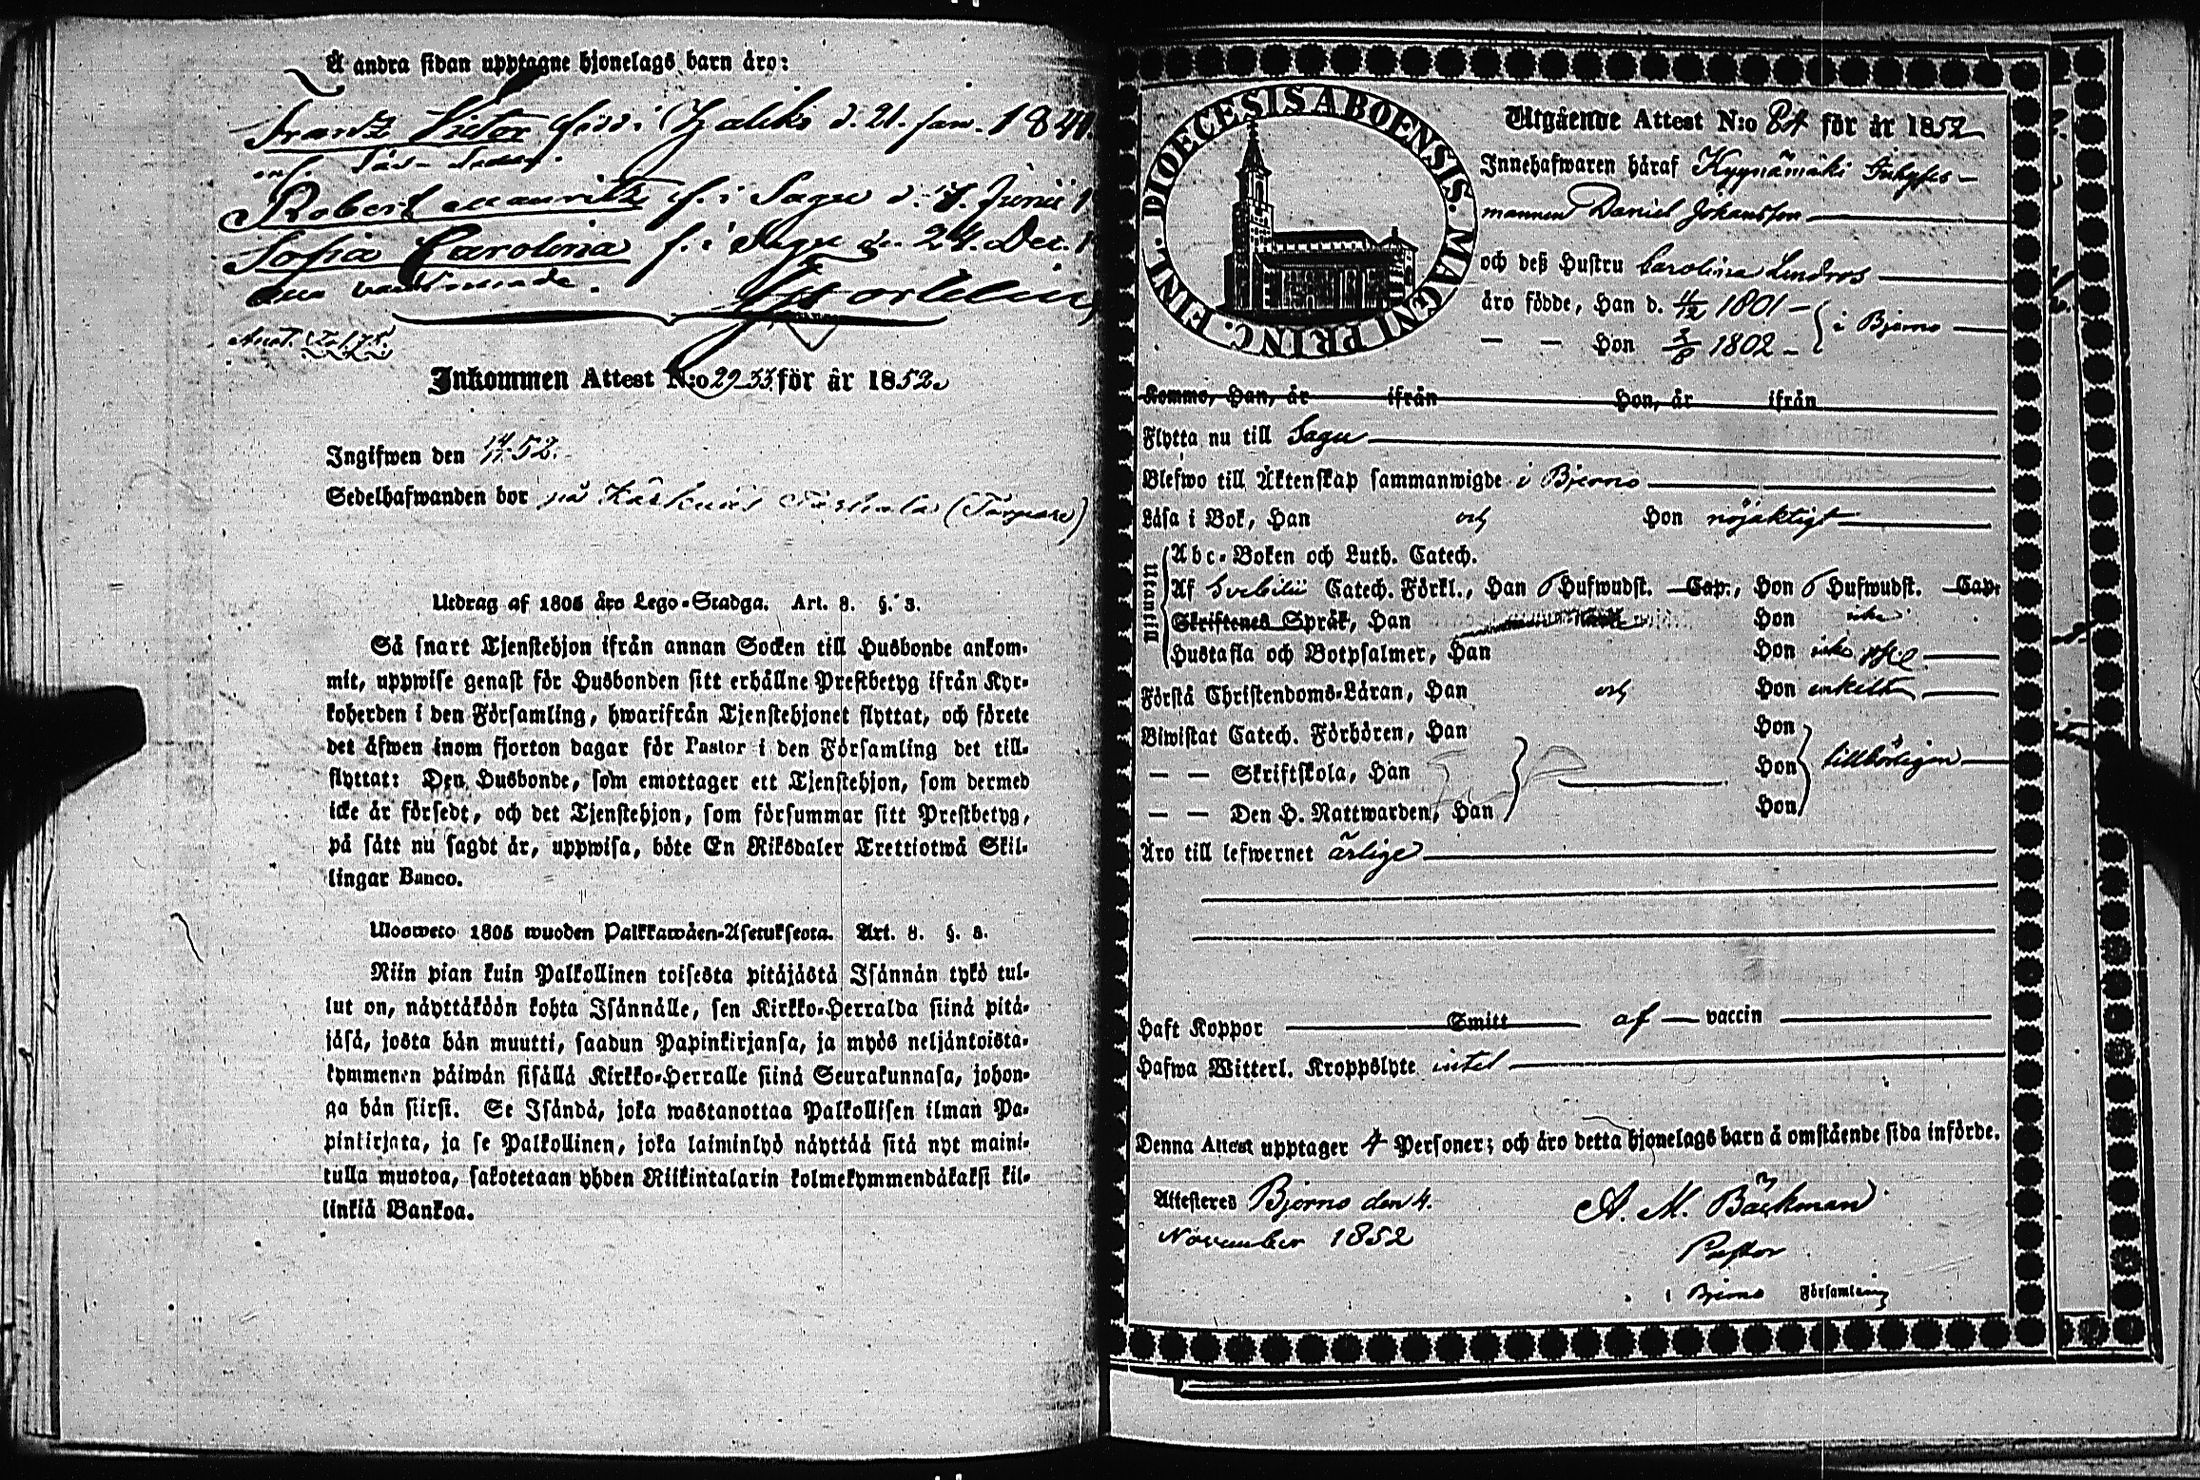 Å andra sidan upptagne hjonelags barn äro:
Frantz Victor född i d. 21. Jan. 184
Robert Mauritz f. i Sagu d. Junii 1
Sofia Carolina f. i Sagu d. 24. Dec. 1
alla vaccinerade.
Inkommen Attest N:o 29-33 för år 1852.
Ingifwen den 14/11 52.
Sedelhafwanden bor på (Torpare)
Utdrag af 1805 års Lego-Stadga. Art. 8. §. 3.
Så snart Tjenstehjon ifrån annan Socken till Husbonde ankom-
mit, uppwise genast för Husbonden sitt erhållne Prestbetyg ifrån Kyr-
koherden i den Församling, hwarifrån Tjenstehjonet flyttat, och förete
det äfwen inom fjorton dagar för Pastor i den Församling det till-
flyttat: Den Husbonde, som emottager ett Tjenstehjon, som dermed
icke är försedt, och det Tjenstehjon, som försummar sitt Prestbetyg,
på sätt nu sagdt är, uppwisa, böte En Riksdaler Trettiotwå Skil-
lingar Banco.
Ulosweto 1805 wuoden Palkkawäen-Asetuksesta. Art. 8. §. 3.
Niin pian kuin Palkollinen toisesta pitäjästä Isännän tykö tul-
lut on, näyttäköön kohta Isännälle, sen Kirkko-Herralda siinä pitä-
jäsä, josta hän muutti, saadun Papinkirjansa, ja myös neljäntoista-
kymmenen päiwän sisällä Kirkko-Herralle siinä Seurakunnasa, johon-
ga hän siirsi. Se Isändä, joka wastanottaa Palkollisen ilman Pa-
pinkirjata, ja se Palkollinen, joka laiminlyö näyttää sitä nyt maini-
tulla muotoa, sakotetaan yhden Riikintalarin kolmekymmendäkaksi kil-
linkiä Bankoa.
DIOECESIS ABOENSIS. MAGNI PRINC. FINL.
Utgående Attest N:o 84 för år 1852
Innehafwaren häraf Kyynämäki Inhyses-
mannen Daniel Johansson
och deß Hustru Carolina Lindros
äro födde, Han d. 4/12 1801 i Bjerno
— — Hon 3/8 1802
Komme, Han, år ifrån Hon, år ifrån
Flytta nu till Sagu
Blefwo till Äktenskap sammanwigde i Bjerno
Läsa i Bok, Han och Hon nöjaktigt
Utantill
Abc-Boken och Luth. Catech.
Af Svebilii Catech. Förkl., Han 6 Hufwudst. Cap., Hon 6 Hufwudst. Cap.
Skriftenes Språk, Han Hon icke
Hustafla och Botpsalmer, Han Hon icke
Förstå Christendoms-Läran, Han och Hon enkelt
Biwistat Catech. Förhören, Han Hon
— — Skriftskola, Han Hon tillbörligen
— — Den H. Nattwarden, Han Hon
Äro till lefwernet ärlige
Haft Koppor Smitt af vaccin
Hafwa Witterl. Kroppslyte intet
Denna Attest upptager 4 Personer; och äro detta hjonelags barn å omstående sida införde.
Attesteres Bjerno den 4.
November 1852
A. M. Bäckman
Pastor
i Bjerno Församling